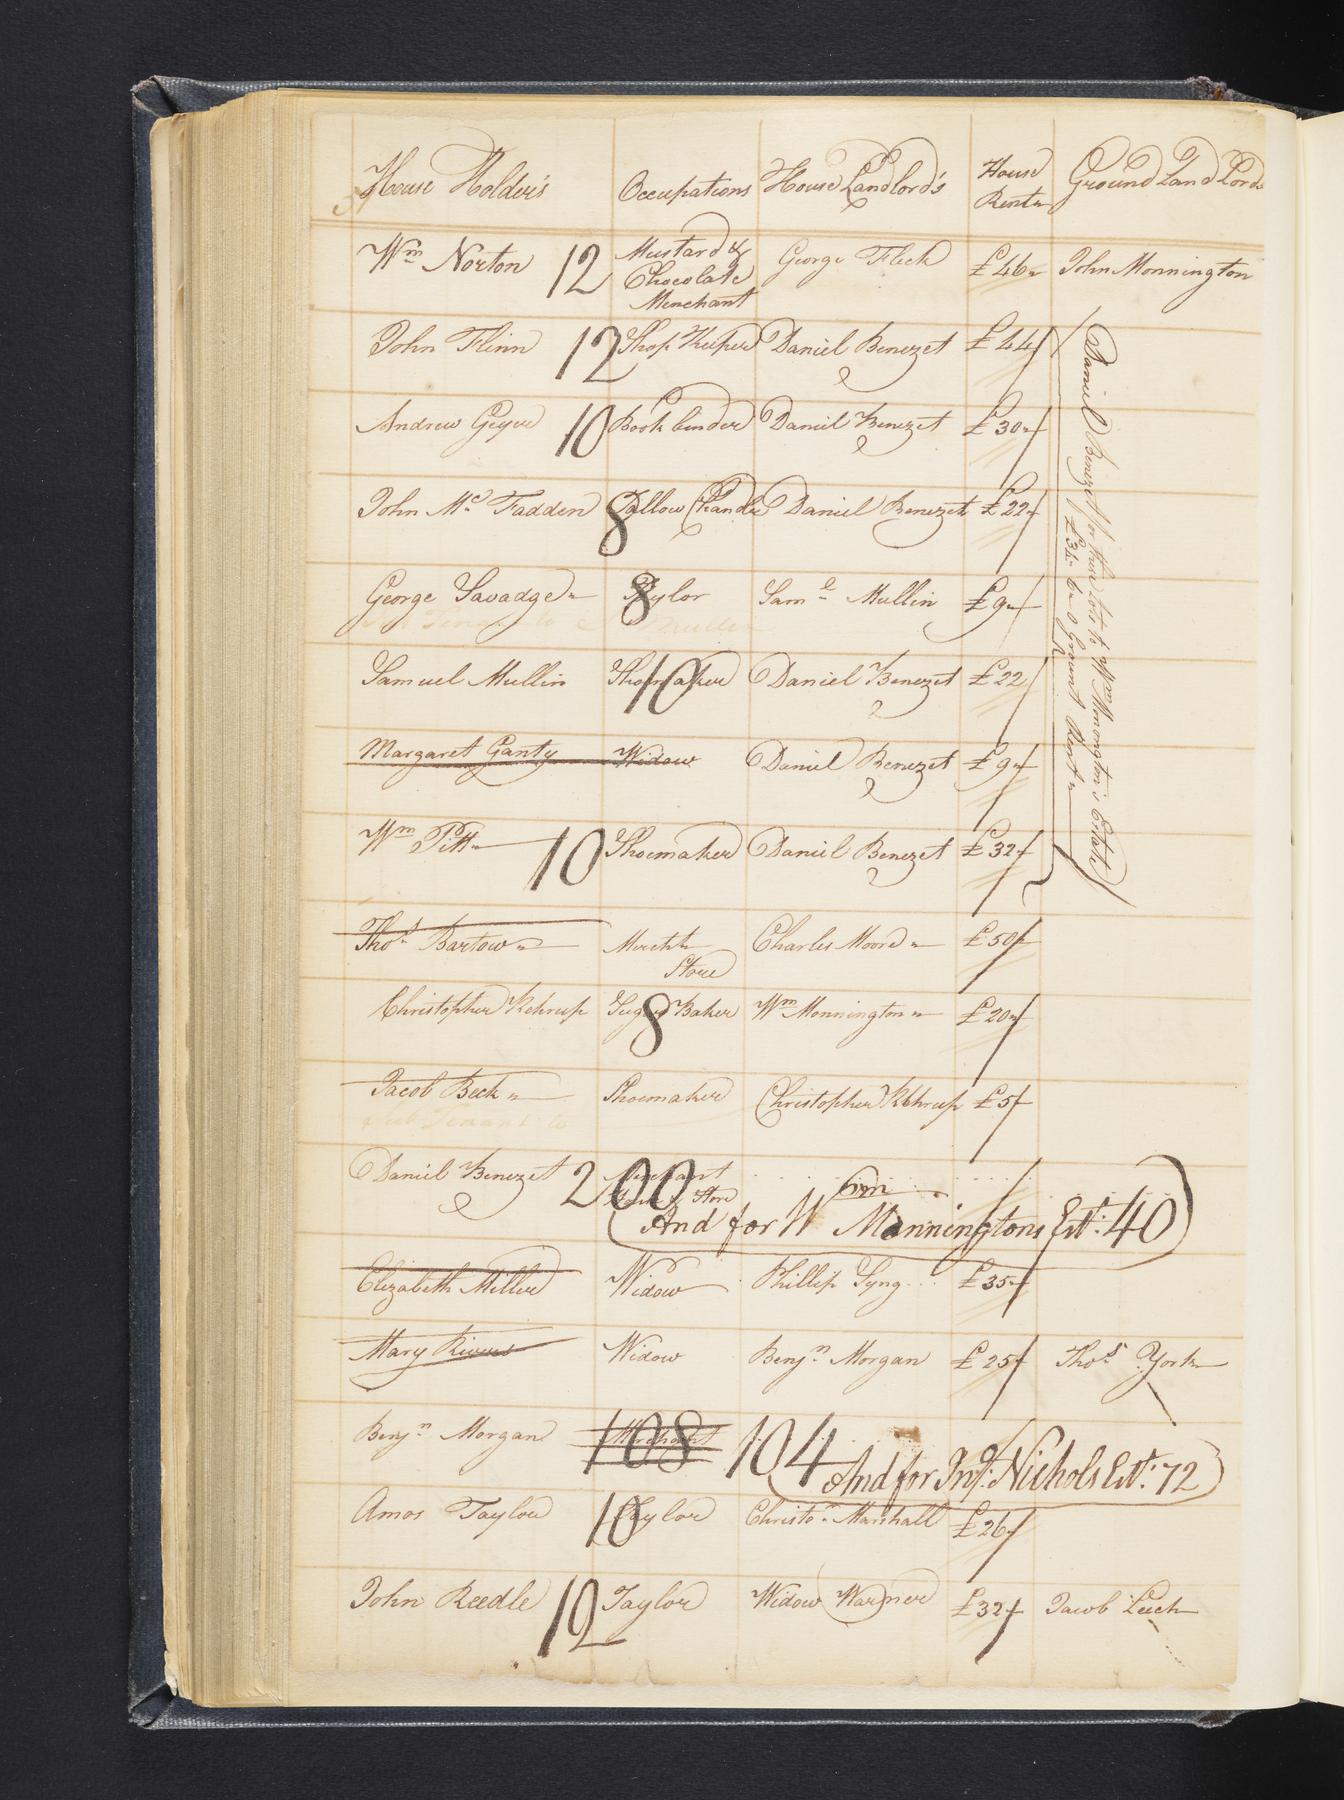 House Holder's Occupations House Landlord's House Rents Ground Land Lords
Wm Norton 12 Mustard & Chocolate Merchant George Fleck £46 John Monnington
John Flinn 12 Shop Keeper Daniel Benezet £44
Andrew Geyer 10 Book binder Daniel Benezet £30
John Mc Fadden 8 Tallow Chandler Daniel Benezet £22
George Savadge 8 Taylor Saml Mullin £9
Sub Tenant to S Mullin
Samuel Mullin 10 Shoemaker Daniel Benezet £22
Margaret Ganty Widow Daniel Benezet £9
Wm Pitt 10 Shoemaker Daniel Benezet £32
Daniel Benezet for these lots to Wm Monington's Estate
£34 Ground Rent
Thos Bartow Mercht Store Charles Moore £50
Christopher Kehrup 8 Sugar Baker Wm Monnington £20
Jacob Beck Shoemaker Christopher Kehrup £5
Sub Tenant to
Daniel Benezet 200 Merchant & Store
(And for Wm Manningtons Estt: 40)
Elizabeth Miller Widow Phillip Syng £35
Mary Rivers Widow Benjn Morgan £25 Thos York
Benjn Morgan Merchant 108 104
And for Jno. Nichols Estt: 72)
Amos Taylor 10 Taylor Christor Marshall £26
John Reedle 12 Taylor Widow Warner £32 Jacob Leech